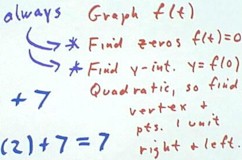 always
Graph f(t)
* Find zeros f(t)=0
* Find y-int. y=f(0)
Quadratic, so find
vertex &
pts. 1 unit
right & left.
+7
(2)+7=7